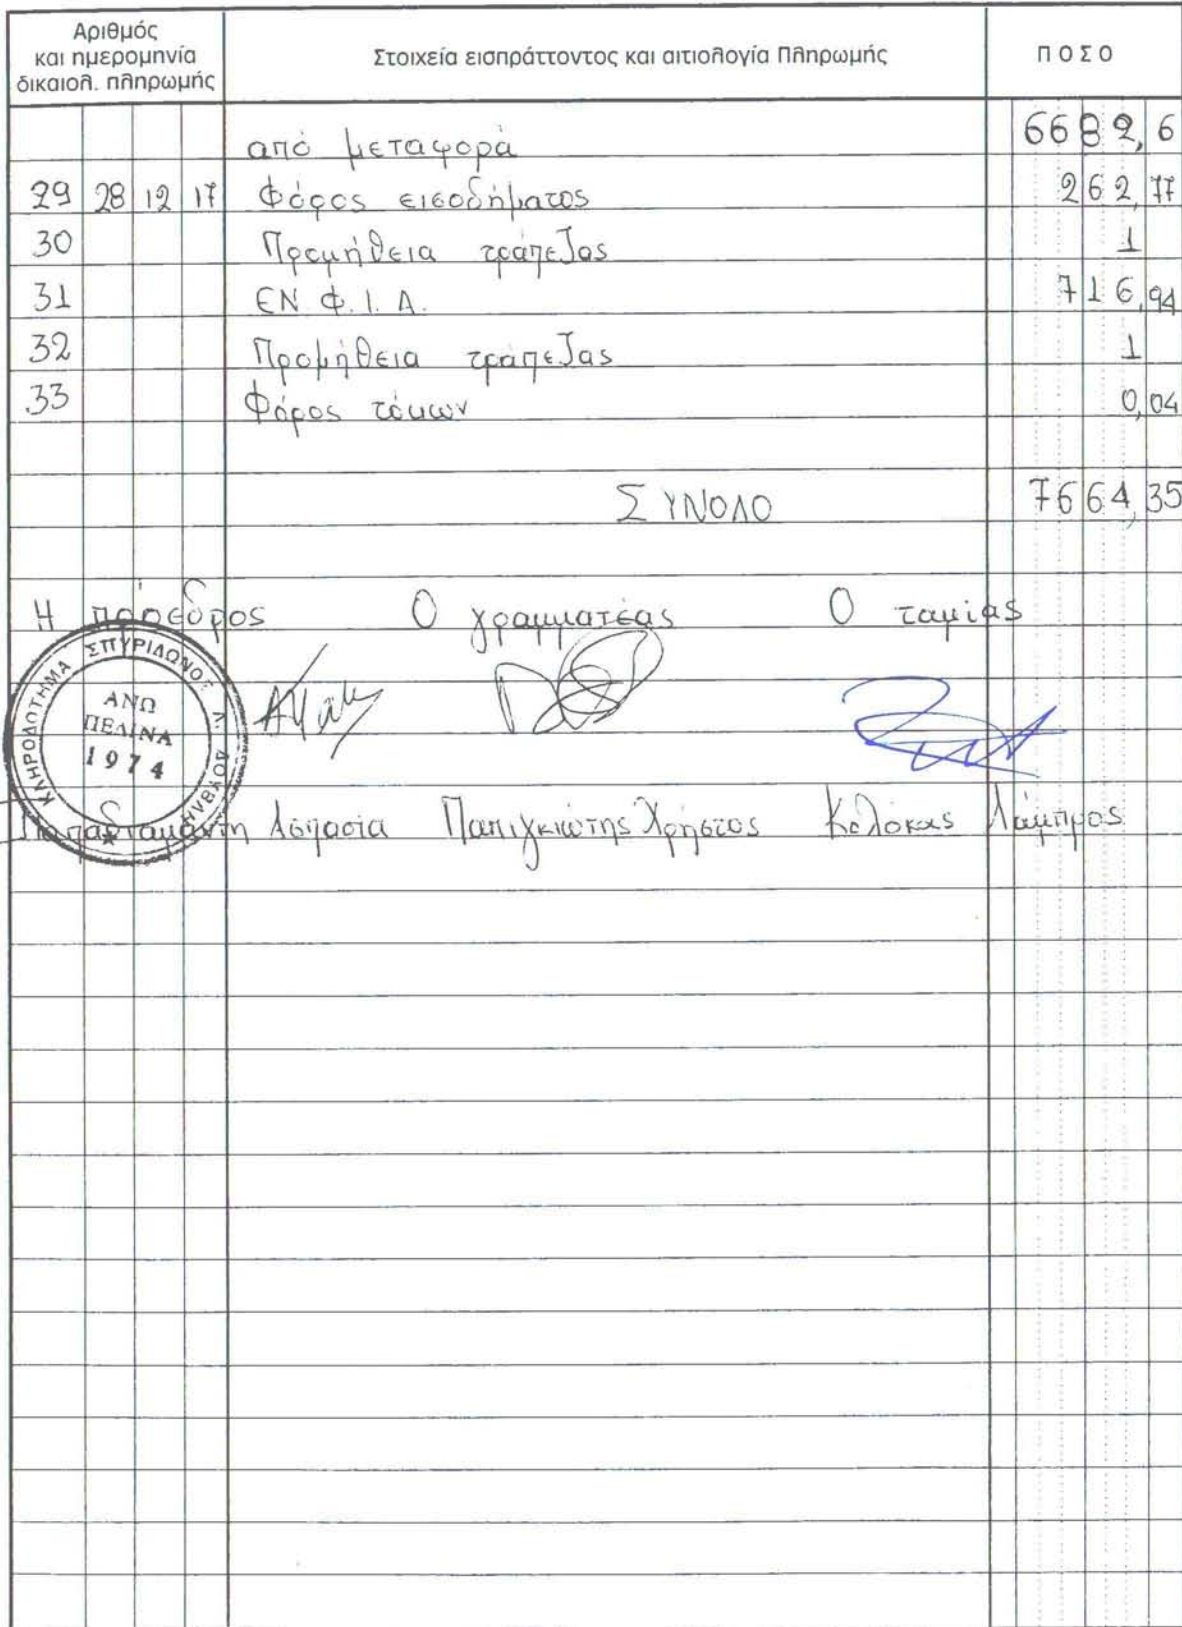 Αριθμός
και ημερομηνία
δικαιολ. πληρωμής
Στοιχεία εισπράττοντος και αιτιολογία Πληρωμής
ΠΟΣΟ
από μεταφορά 6682,6
29 28 12 17 Φόρος εισοδήματος 262,77
30 Προμήθεια τράπεζας 1
31 ΕΝ.Φ.Ι.Α. 716,94
32 Προμήθεια τράπεζας 1
33 Φόρος τόκων 0,04
ΣΥΝΟΛΟ 7664,35
Η πρόεδρος Ο γραμματέας Ο ταμίας
ΚΛΗΡΟΔΟΤΗΜΑ ΣΠΥΡΙΔΩΝΟΣ Λ.
ΑΝΩ
ΠΕΔΙΝΑ
1974
Παπαδιαμάντη Ασπασία Παπιγκιώτης Χρήστος Κολόκας Λάμπρος